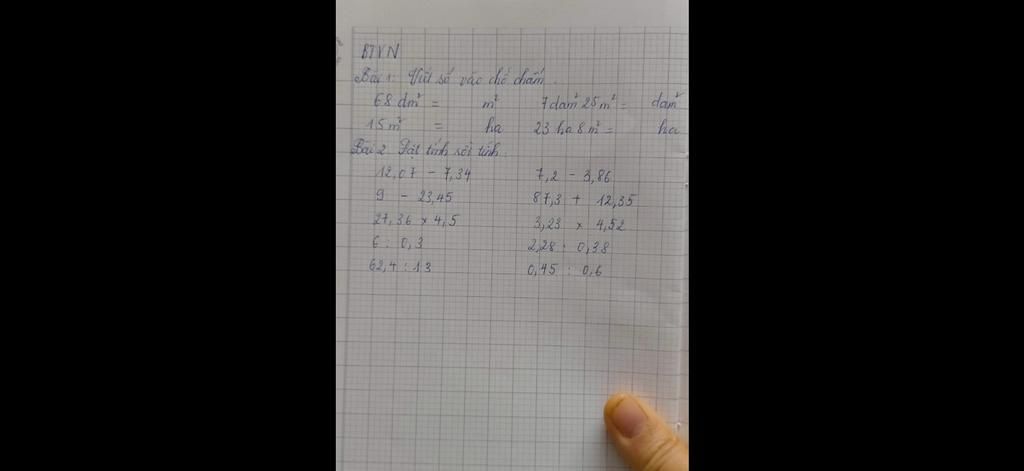 BTVN
Bài 1: Viết số vào chỗ chấm.
68 dm² = m² 7 dam² 25 m² = dam²
15 m² = ha 23 ha 8 m² = ha
Bài 2 Đặt tính rồi tính.
12,07 - 7,34 7,2 - 3,86
9 - 23,45 87,3 + 12,35
27,36 x 4,5 3,23 x 4,52
6 : 0,3 2,28 : 0,38
62,4 : 13 0,45 : 0,6